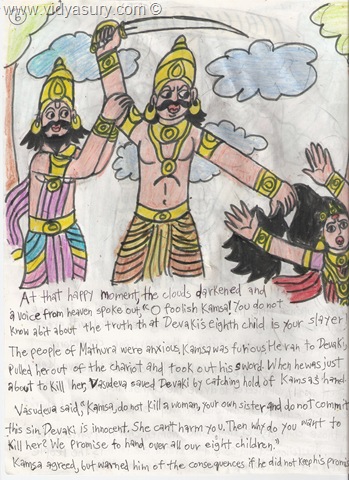 © www.vidyasury.com
6
At that happy moment, the clouds darkened and
a voice from heaven spoke out "O foolish Kamsa! You do not
know a bit about the truth that Devaki's eighth child is your slayer!
The people of Mathura were anxious, Kamsa was furious. He ran to Devaki,
Pulled her out of the chariot and took out his sword. When he was just
about to kill her, Vasudeva saved Devaki by catching hold of Kamsa's hand.
Vasudeva said, "Kamsa, do not kill a woman, your own sister and do not commit
this sin. Devaki is innocent. She can't harm you. Then why do you want to
kill her? We Promise to hand over all our eight children."
Kamsa agreed, but warned him of the consequences if he did not keep his promis